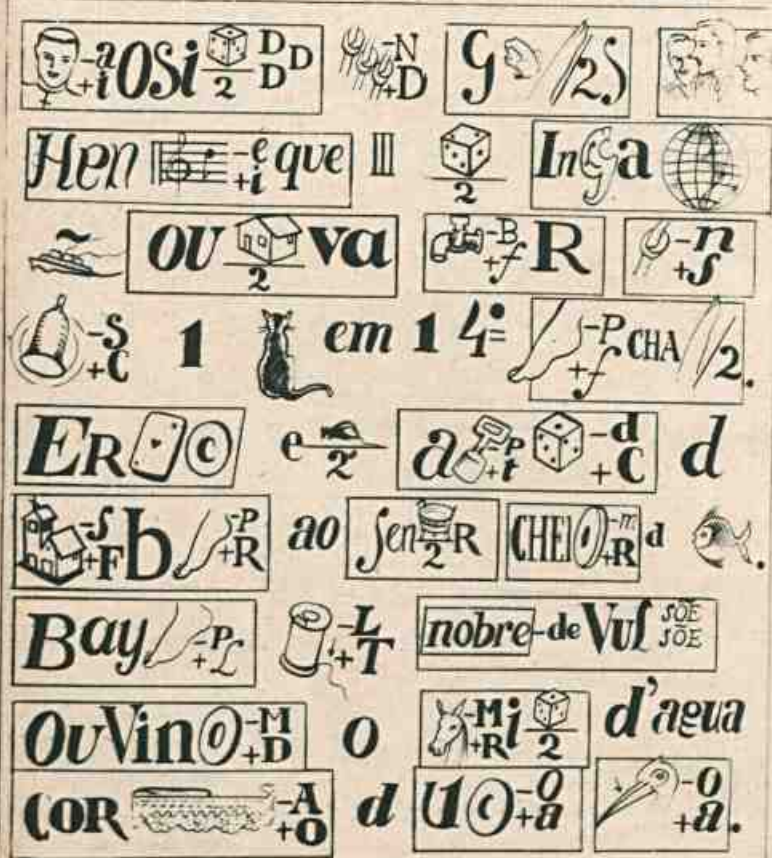 -a +i OSi 2 D D D -N +D G /2S
Hen -e +i que III 2 InGa
~ OU 2 va -B +f R -n +S
-S +C 1 em 1 4º -P +f CHA /2.
ER C e 2 a -P +t -d +C d
-S +F b -P +R ao Sen 2 R CHEI -m +R d .
Bay -P +L -L +T nobre -de VuS SÕE SÕE
OuVin -M +D O -M +R i 2 d'agua
COR -A +O d U1C -O +a -O +a.